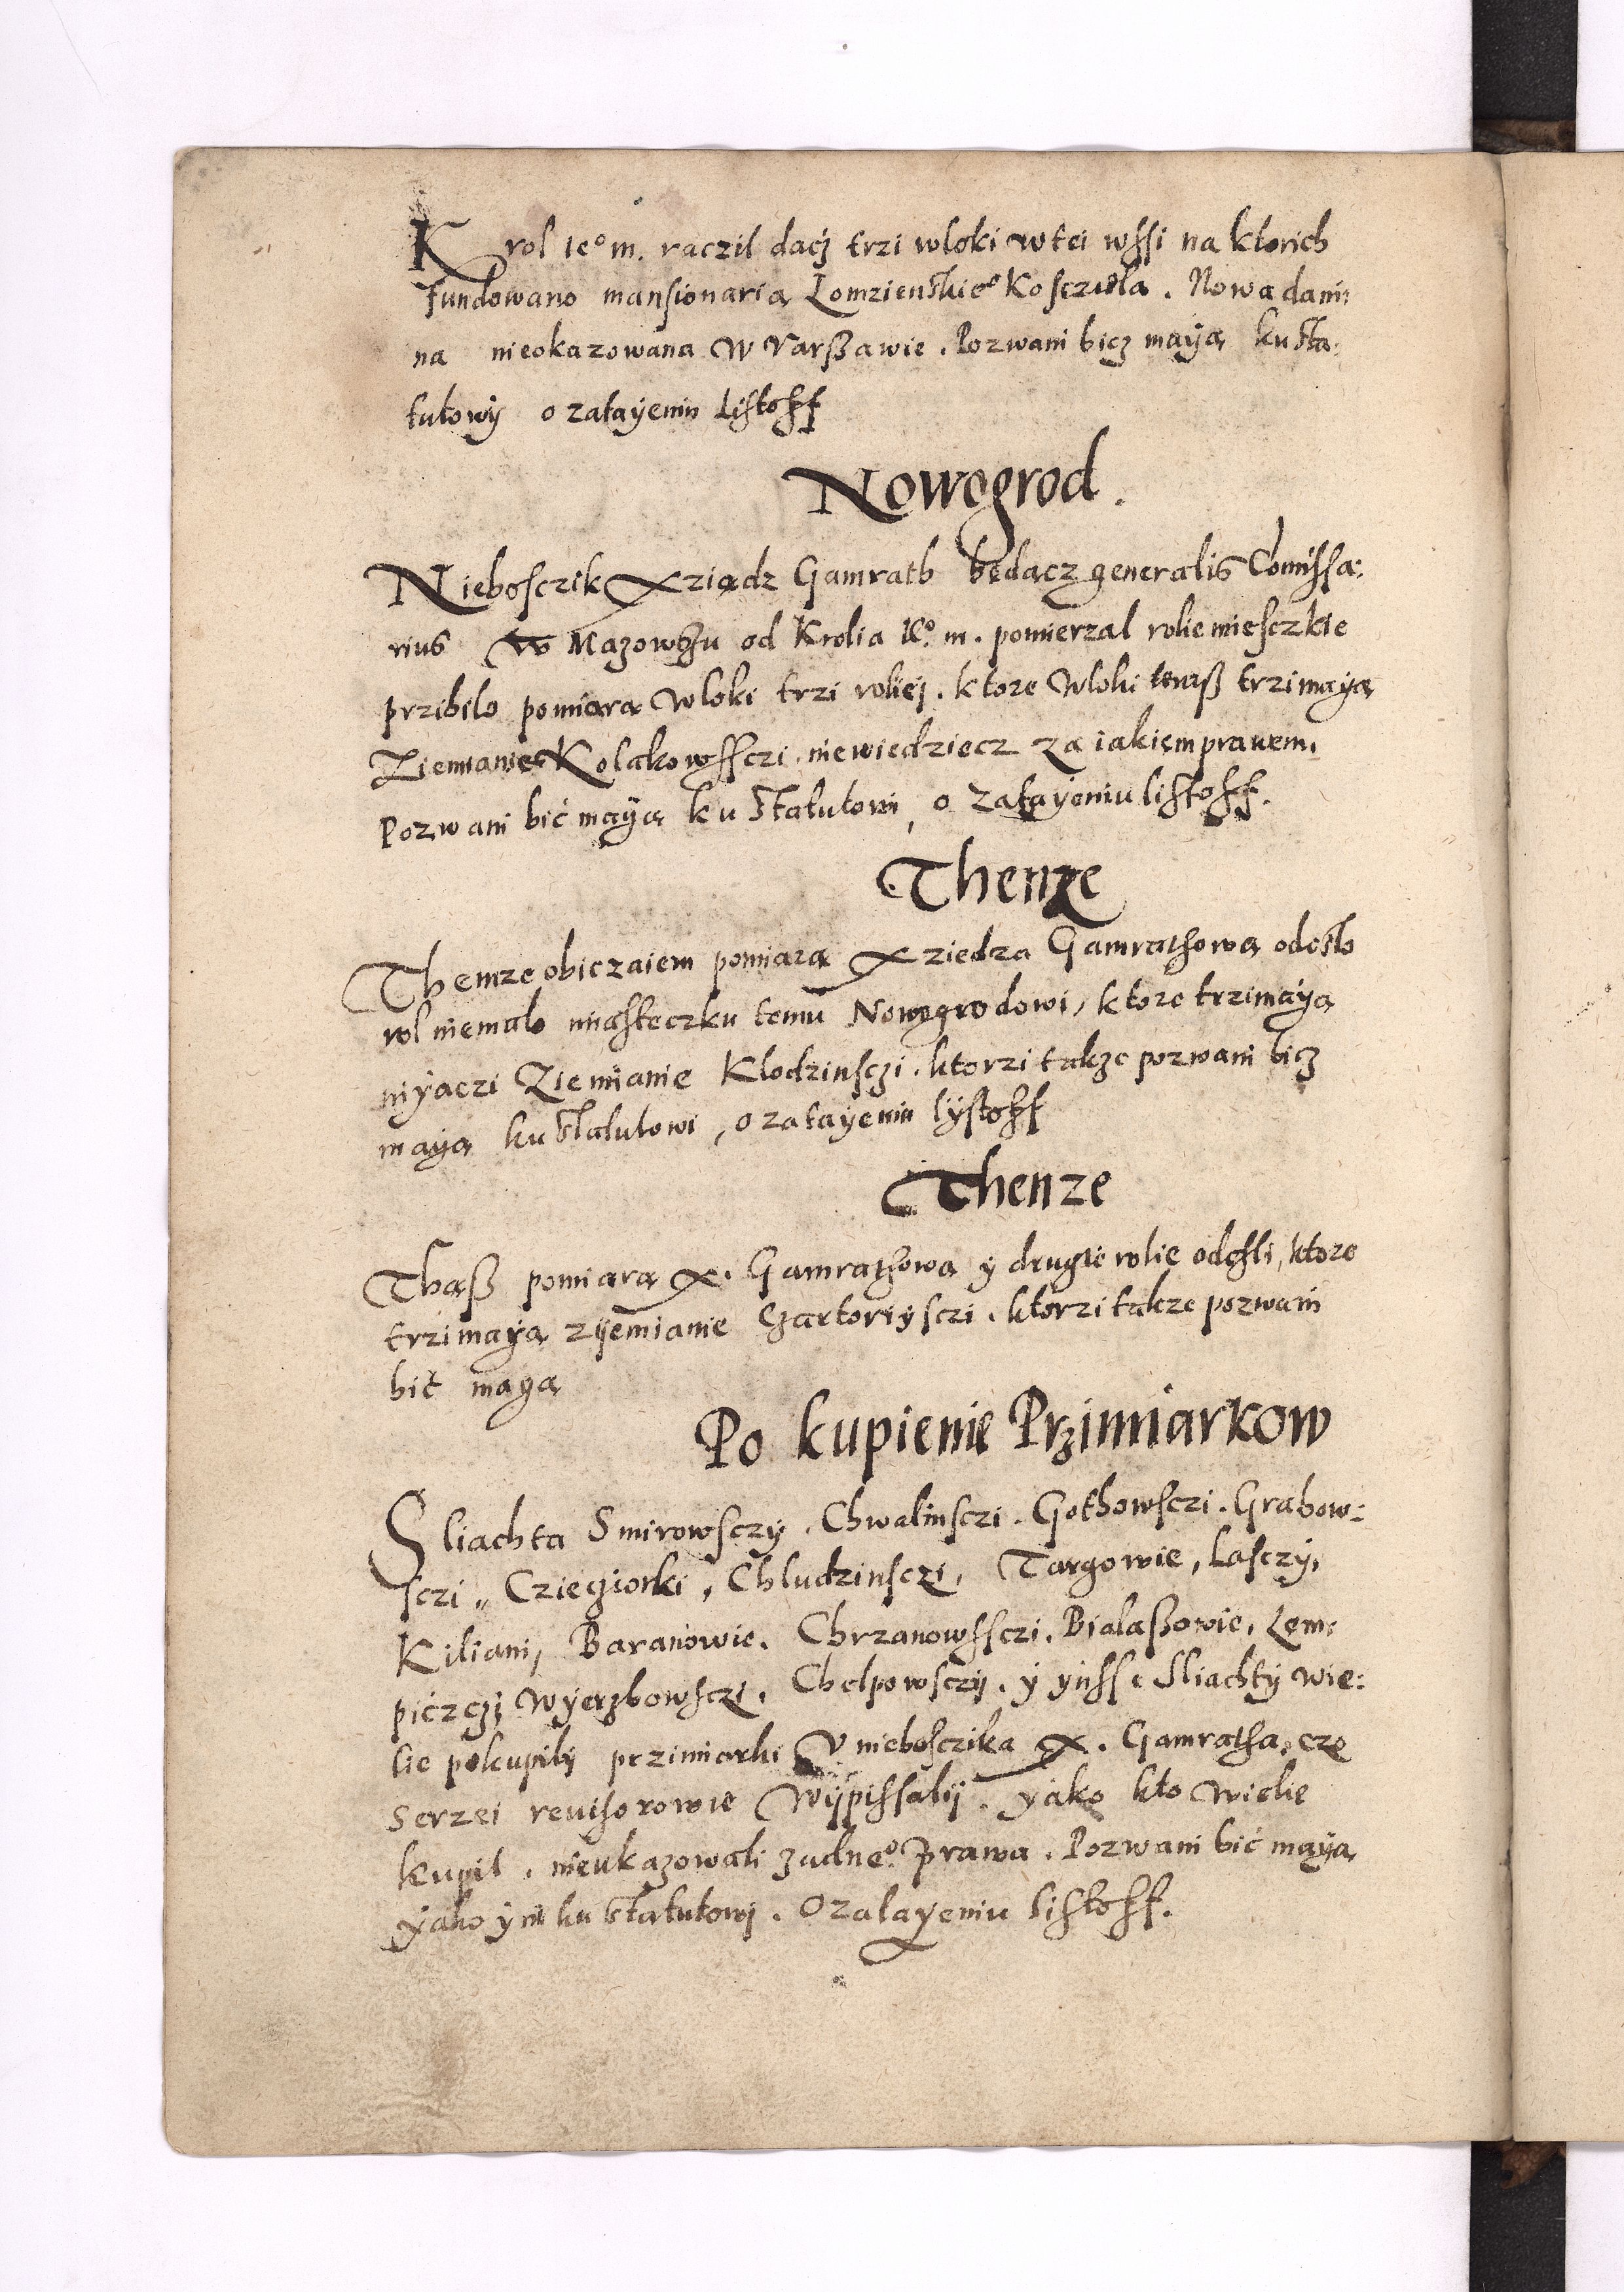 Krol ieº m. raczil dacz trzi wloki w tei wssi na ktorich
fundowano mansionarią Lomzienskieº Koscziola. Nowa dani:
na nieokazowana W Varßawie. Pozwani bicz mayą ku sta:
tutowy o zatayeniu Listoff
Nowogrod.
Niebosczik Xziądz Gamrath będącz generalis Comissa:
rius W Mazowßu od Krolia ieº m. pomierzal rolie miesczkie
przibilo pomiarą Wloki trzi roliej. ktore Wloki teraß trzimayą
Ziemianie Kolakowssczi. niewiedziecz za iakiem prawem.
Pozwani bić mayą ku statutowi, o zatayeniu listoff.
Thenze
Themze obiczaiem pomiarą Xziedza Gamrathową odeslo
rol niemalo miasteczku temu Nowogrodowi, ktore trzimayą
niyaczi Ziemianie Klodzinsczi. ktorzi takze pozwani bicz
mayą ku statutowi, o zatayeniu lystoff
Thenze
Thąß pomiarą X. Gamrathową y drugie rolie odeßli, ktore
trzimayą zyemianie Czartoriysczi. ktorzi takze pozwani
bić mayą
Po kupienie Przimiarkow
Sliachta Smirowsczy. Chwalinsczi. Gothowsczi. Grabow:
sczi,, Cziegiorki, Chludzinsczi, Targowie, Lasczy,
Kiliani, Baranowie. Chrzanowssczi. Bialaßowie, Lem:
piczczi Wyerzbowsczi. Chelpowsczy. y ynsse Sliachty wie:
lie pokupily przimiarki V nieboszczika X. Gamratha, czo
serzei reuisorowie Wypissaly. yako kto wielie
kupil. nieukazowali zadneº prawa. Pozwani bić mayą
yako yni ku statutowi. O zatayeniu listoff.